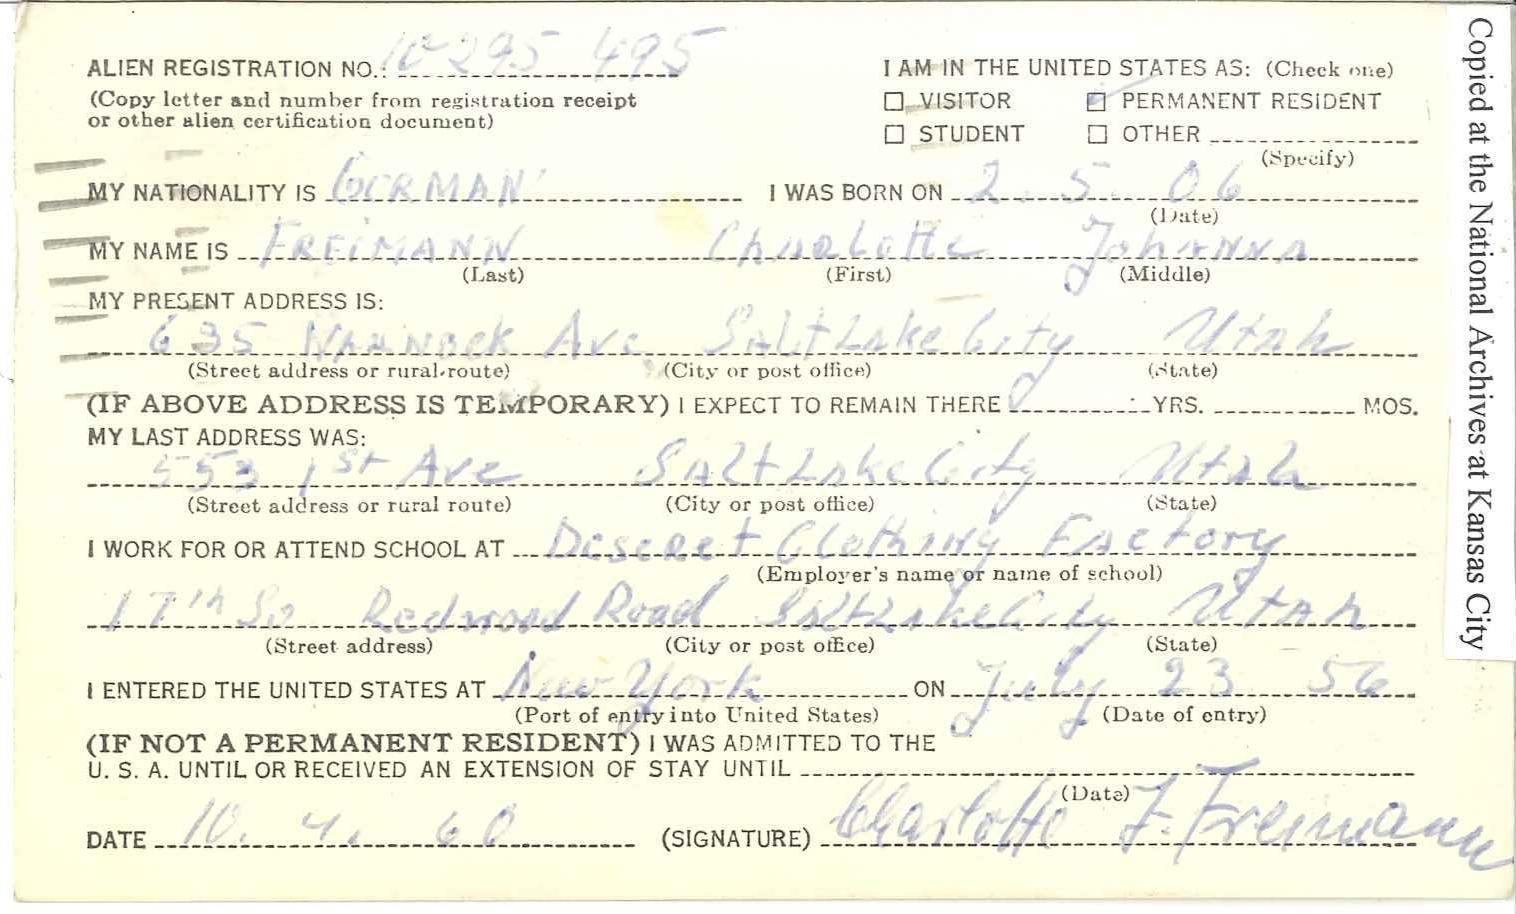 ALIEN REGISTRATION NO.: 10 295 495
(Copy letter and number from registration receipt
or other alien certification document)
I AM IN THE UNITED STATES AS: (Check one)
☐ VISITOR ☑ PERMANENT RESIDENT
☐ STUDENT ☐ OTHER
(Specify)
MY NATIONALITY IS GERMAN I WAS BORN ON 2. 5. 06
(Date)
MY NAME IS FREIMANN Charlotte Johanna
(Last) (First) (Middle)
MY PRESENT ADDRESS IS:
635 Ave Salt Lake City Utah
(Street address or rural route) (City or post office) (State)
(IF ABOVE ADDRESS IS TEMPORARY) I EXPECT TO REMAIN THERE YRS. MOS.
MY LAST ADDRESS WAS:
553 1st Ave Salt Lake City Utah
(Street address or rural route) (City or post office) (State)
I WORK FOR OR ATTEND SCHOOL AT Deseret Clothing Factory
(Employer's name or name of school)
17th So Redwood Road Salt Lake City Utah
(Street address) (City or post office) (State)
I ENTERED THE UNITED STATES AT New York ON July 23 56
(Port of entry into United States) (Date of entry)
(IF NOT A PERMANENT RESIDENT) I WAS ADMITTED TO THE
U. S. A. UNTIL OR RECEIVED AN EXTENSION OF STAY UNTIL
(Date)
DATE 10. 4. 60 (SIGNATURE) Charlotte J. Freimann
Copied at the National Archives at Kansas City